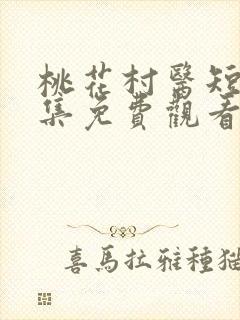 桃花村醫短
集免費觀看
喜馬拉雅種猫